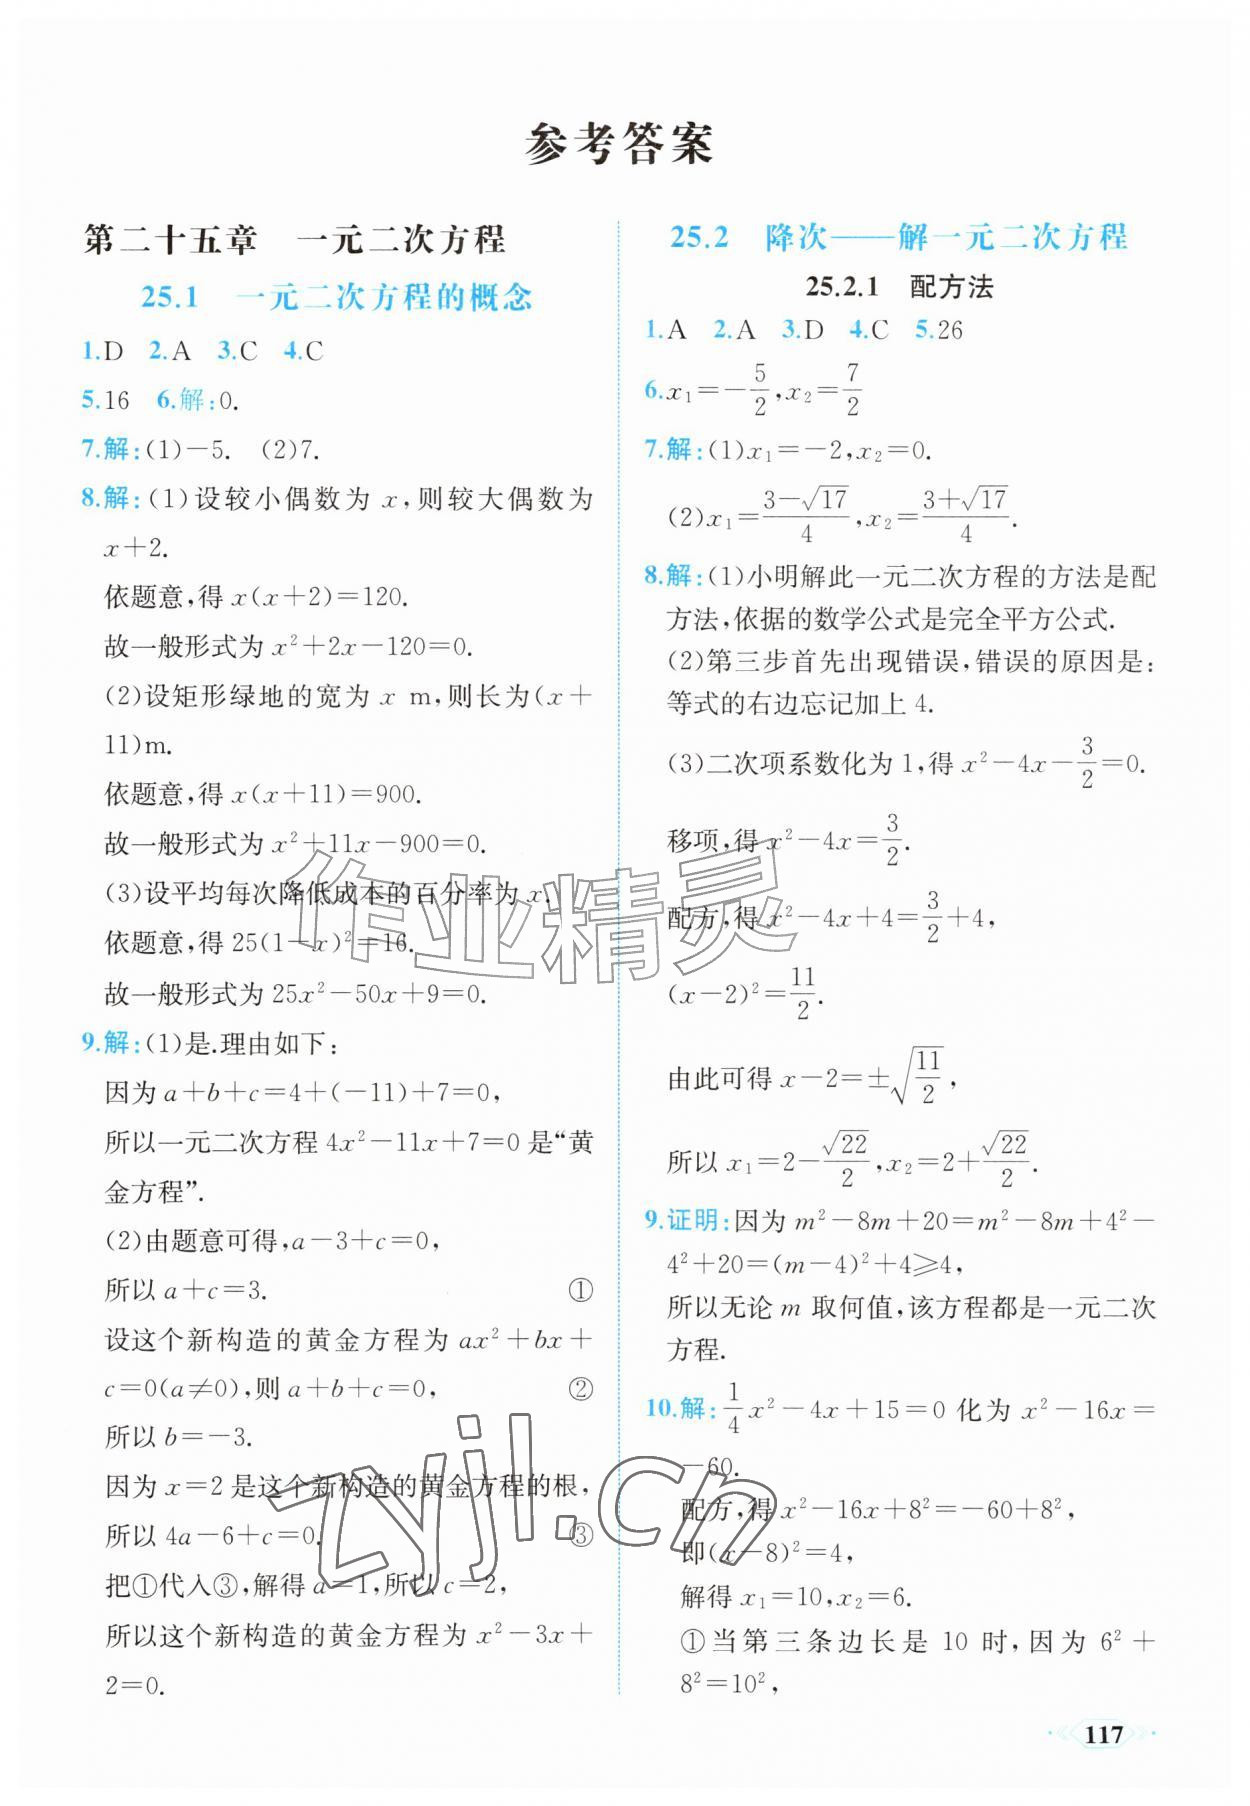 参考答案
第二十五章 一元二次方程
25.1 一元二次方程的概念
1.D 2.A 3.C 4.C
5.16 6.解:0.
7.解:(1)-5. (2)7.
8.解:(1)设较小偶数为 x,则较大偶数为
x+2.
依题意,得 x(x+2)=120.
故一般形式为 x²+2x-120=0.
(2)设矩形绿地的宽为 x m,则长为(x+
11)m.
依题意,得 x(x+11)=900.
故一般形式为 x²+11x-900=0.
(3)设平均每次降低成本的百分率为 x.
依题意,得 25(1-x)²=16.
故一般形式为 25x²-50x+9=0.
9.解:(1)是.理由如下:
因为 a+b+c=4+(-11)+7=0,
所以一元二次方程 4x²-11x+7=0 是“黄
金方程”.
(2)由题意可得,a-3+c=0,
所以 a+c=3. ①
设这个新构造的黄金方程为 ax²+bx+
c=0(a≠0),则 a+b+c=0, ②
所以 b=-3.
因为 x=2 是这个新构造的黄金方程的根,
所以 4a-6+c=0. ③
把①代入③,解得 a=1,所以 c=2,
所以这个新构造的黄金方程为 x²-3x+
2=0.
25.2 降次——解一元二次方程
25.2.1 配方法
1.A 2.A 3.D 4.C 5.26
6.x₁=-5/2,x₂=7/2
7.解:(1)x₁=-2,x₂=0.
(2)x₁=(3-√17)/4,x₂=(3+√17)/4.
8.解:(1)小明解此一元二次方程的方法是配
方法,依据的数学公式是完全平方公式.
(2)第三步首先出现错误,错误的原因是:
等式的右边忘记加上 4.
(3)二次项系数化为 1,得 x²-4x-3/2=0.
移项,得 x²-4x=3/2.
配方,得 x²-4x+4=3/2+4,
(x-2)²=11/2.
由此可得 x-2=±√(11/2),
所以 x₁=2-√22/2,x₂=2+√22/2.
9.证明:因为 m²-8m+20=m²-8m+4²-
4²+20=(m-4)²+4≥4,
所以无论 m 取何值,该方程都是一元二次
方程.
10.解:1/4x²-4x+15=0 化为 x²-16x=
-60.
配方,得 x²-16x+8²=-60+8²,
即(x-8)²=4,
解得 x₁=10,x₂=6.
①当第三条边长是 10 时,因为 6²+
8²=10²,
117
作业精灵
zyjl.cn